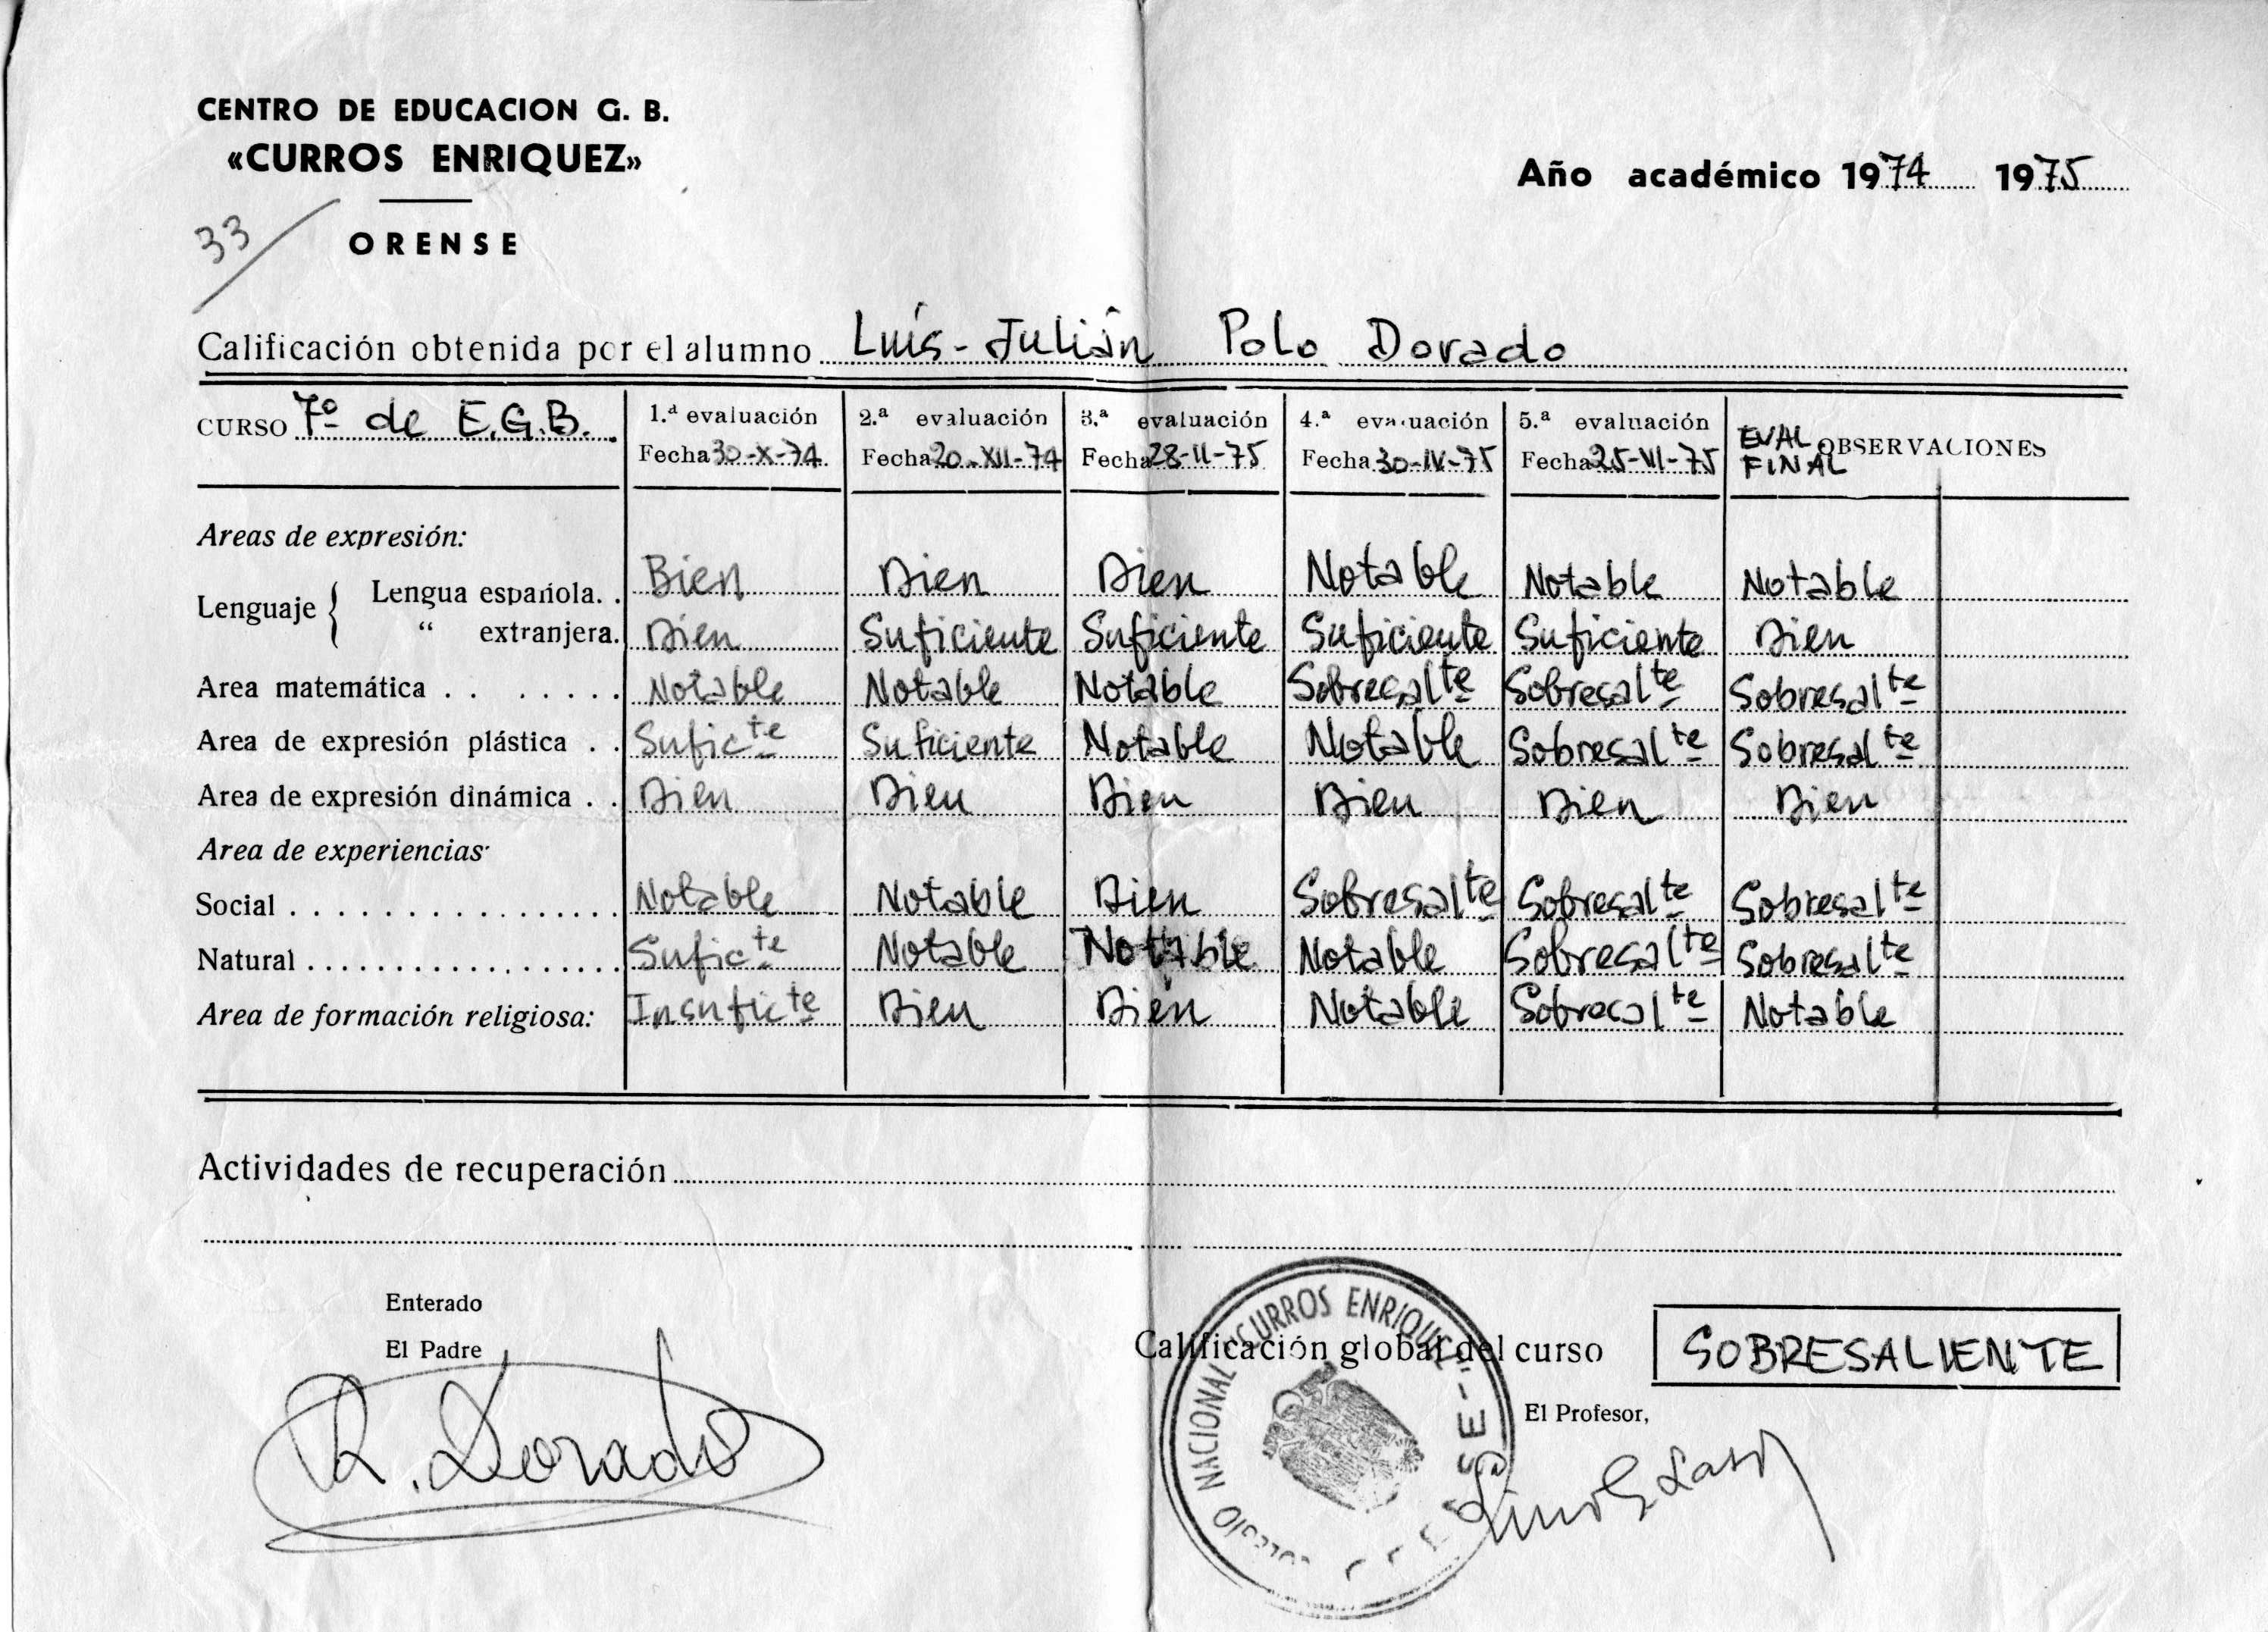 CENTRO DE EDUCACION G. B.
«CURROS ENRIQUEZ»
Año académico 1974 1975
33
ORENSE
Calificación obtenida por el alumno Luís-Julián Polo Dorado
CURSO 7º de E.G.B. 1.ª evaluación 2.ª evaluación 3.ª evaluación 4.ª evaluación 5.ª evaluación EVAL FINAL OBSERVACIONES
Fecha 30-X-74 Fecha 20-XII-74 Fecha 28-II-75 Fecha 30-IV-75 Fecha 25-VI-75
Areas de expresión:
Lenguaje { Lengua española. . Bien Bien Bien Notable Notable Notable
“ extranjera. Bien Suficiente Suficiente Suficiente Suficiente Bien
Area matemática . . . . . . . Notable Notable Notable Sobresalte Sobresalte Sobresalte
Area de expresión plástica . . Suficte Suficiente Notable Notable Sobresalte Sobresalte
Area de expresión dinámica . . Bien Bien Bien Bien Bien Bien
Area de experiencias
Social . . . . . . . . . . . . . . . . Notable Notable Bien Sobresalte Sobresalte Sobresalte
Natural . . . . . . . . . . . . . . . . Suficte Notable Notable Notable Sobresalte Sobresalte
Area de formación religiosa: Insuficte Bien Bien Notable Sobresalte Notable
Actividades de recuperación
Enterado
El Padre
R. Dorado
Calificación global del curso SOBRESALIENTE
El Profesor,
COLEGIO NACIONAL "CURROS ENRIQUEZ"